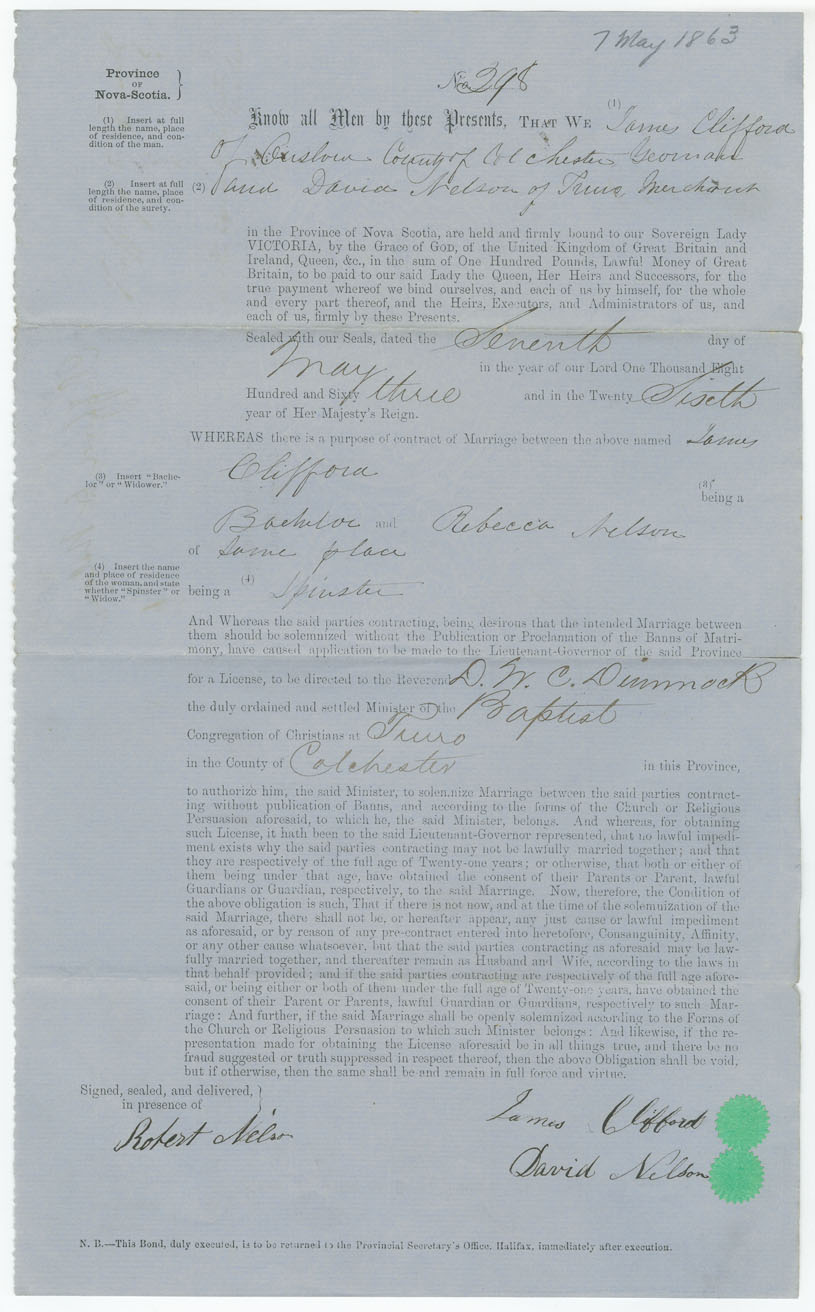 7 May 1863
Province
OF
Nova-Scotia.
No 298
(1) Insert at full
length the name, place
of residence, and con-
dition of the man.
Know all Men by these Presents, THAT WE (1) James Clifford
of Onslow County of Colchester Yeoman
(2) Insert at full
length the name, place
of residence, and con-
dition of the surety.
(2) and David Nelson of Truro Merchant
in the Province of Nova Scotia, are held and firmly bound to our Sovereign Lady
VICTORIA, by the Grace of GOD, of the United Kingdom of Great Britain and
Ireland, Queen, &c., in the sum of One Hundred Pounds, Lawful Money of Great
Britain, to be paid to our said Lady the Queen, Her Heirs and Successors, for the
true payment whereof we bind ourselves, and each of us by himself, for the whole
and every part thereof, and the Heirs, Executors, and Administrators of us, and
each of us, firmly by these Presents.
Sealed with our Seals, dated the Seventh day of
May in the year of our Lord One Thousand Eight
Hundred and Sixty three and in the Twenty Sixth
year of Her Majesty's Reign.
WHEREAS there is a purpose of contract of Marriage between the above named James
Clifford
(3) Insert "Bache-
lor" or "Widower."
(3) being a
Bachelor and Rebecca Nelson
of Same place
(4) Insert the name
and place of residence
of the woman, and state
whether "Spinster" or
"Widow."
being a (4) Spinster
And Whereas the said parties contracting, being desirous that the intended Marriage between
them should be solemnized without the Publication or Proclamation of the Banns of Matri-
mony, have caused application to be made to the Lieutenant-Governor of the said Province
for a License, to be directed to the Reverend D. W. C. Dimmock
the duly ordained and settled Minister of the Baptist
Congregation of Christians at Truro
in the County of Colchester in this Province,
to authorize him, the said Minister, to solemnize Marriage between the said parties contract-
ing without publication of Banns, and according to the forms of the Church or Religious
Persuasion aforesaid, to which he, the said Minister, belongs. And whereas, for obtaining
such License, it hath been to the said Lieutenant-Governor represented, that no lawful impedi-
ment exists why the said parties contracting may not be lawfully married together; and that
they are respectively of the full age of Twenty-one years; or otherwise, that both or either of
them being under that age, have obtained the consent of their Parents or Parent, lawful
Guardians or Guardian, respectively, to the said Marriage. Now, therefore, the Condition of
the above obligation is such, That if there is not now, and at the time of the solemnization of the
said Marriage, there shall not be, or hereafter appear, any just cause or lawful impediment
as aforesaid, or by reason of any pre-contract entered into heretofore, Consanguinity, Affinity,
or any other cause whatsoever, but that the said parties contracting as aforesaid may be law-
fully married together, and thereafter remain as Husband and Wife, according to the laws in
that behalf provided; and if the said parties contracting are respectively of the full age afore-
said, or being either or both of them under the full age of Twenty-one years, have obtained the
consent of their Parent or Parents, lawful Guardian or Guardians, respectively to such Mar-
riage: And further, if the said Marriage shall be openly solemnized according to the Forms of
the Church or Religious Persuasion to which such Minister belongs: And likewise, if the re-
presentation made for obtaining the License aforesaid be in all things true, and there be no
fraud suggested or truth suppressed in respect thereof, then the above Obligation shall be void,
but if otherwise, then the same shall be and remain in full force and virtue.
Signed, sealed, and delivered,
in presence of
James Clifford
Robert Nelson
David Nelson
N. B.—This Bond, duly executed, is to be returned to the Provincial Secretary's Office, Halifax, immediately after execution.